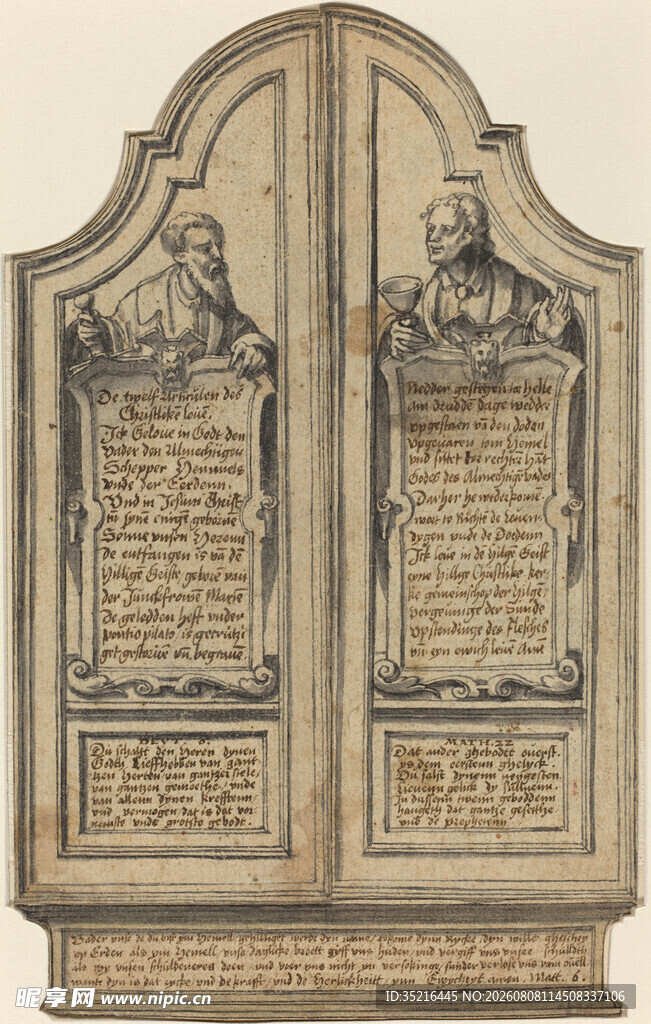 De twelf Articulen des
Christliken loue.
Ick Geloue in Godt den
Vader den Almechtigen
Schepper Hemmels
unde der Eerdenn.
Und in Jesum Christ
synē einigē gebornē
Sonne unsen Herenn
de entfangen is vā dē
Hilligē Geiste, geborē van
der Junckfrowen Marie
De geledden heft under
pontio pilato, is getrutzi
get, gestorue vn begraue.
Nedder gestegen to helle
am drudde dage wedder
upgestaen vā den doden
upgeuaren tom Hemel
und sittet tor rechter hāt
Godes des Almechtigē vaders
Dar her he weder komē
wert to Richtē de leuen-
dygen unde de Doedenn
Ick loue in de hilge Geist
eyne hillige Christlike ker-
ke gemeinschop der hilgē
vorgeuinge der Sunde
upstendinge des flesches
vn eyn ewich leue Amē
DEVT. 6.
Du schalt den Heren dynen
Godth Lieffhebben van gant-
tzen herten/van gantzer siele/
van gantzen gemoethe/unde
van allenn dynen krefftenn/
und vermogen/dat is dat vor
nemste unde grotste gebodt.
MATH. 22
Dat ander ghebodet ouerst
ys dem eerstenn ghelyck.
Du salst dynenn negesten
lieuenn gelick dy sulluenn.
In dussenn twenn geboddenn
hangeth dat gantze gesetthe
und de prophetenn
Vader unse de du bist ym Hemell, gehilliget werde dyn name/ tokome dynn Rycke/ dyn wille gheschey
up Erden als ym Hemell/ unse daglicke broett gyff uns huden/ und vergiff uns unsee schuldth
als wy unsen schuldeneren doen/ und voer uns nicht yn versokinge/ sunder verlose uns vam ouell
wante dyn is dat rycke/ und de krafft/ und de Herlickheitt/ ynn Ewycheyt amen. Matt. 6.
昵享网 www.nipic.cn
ID:35216445 NO:20260808114508337106